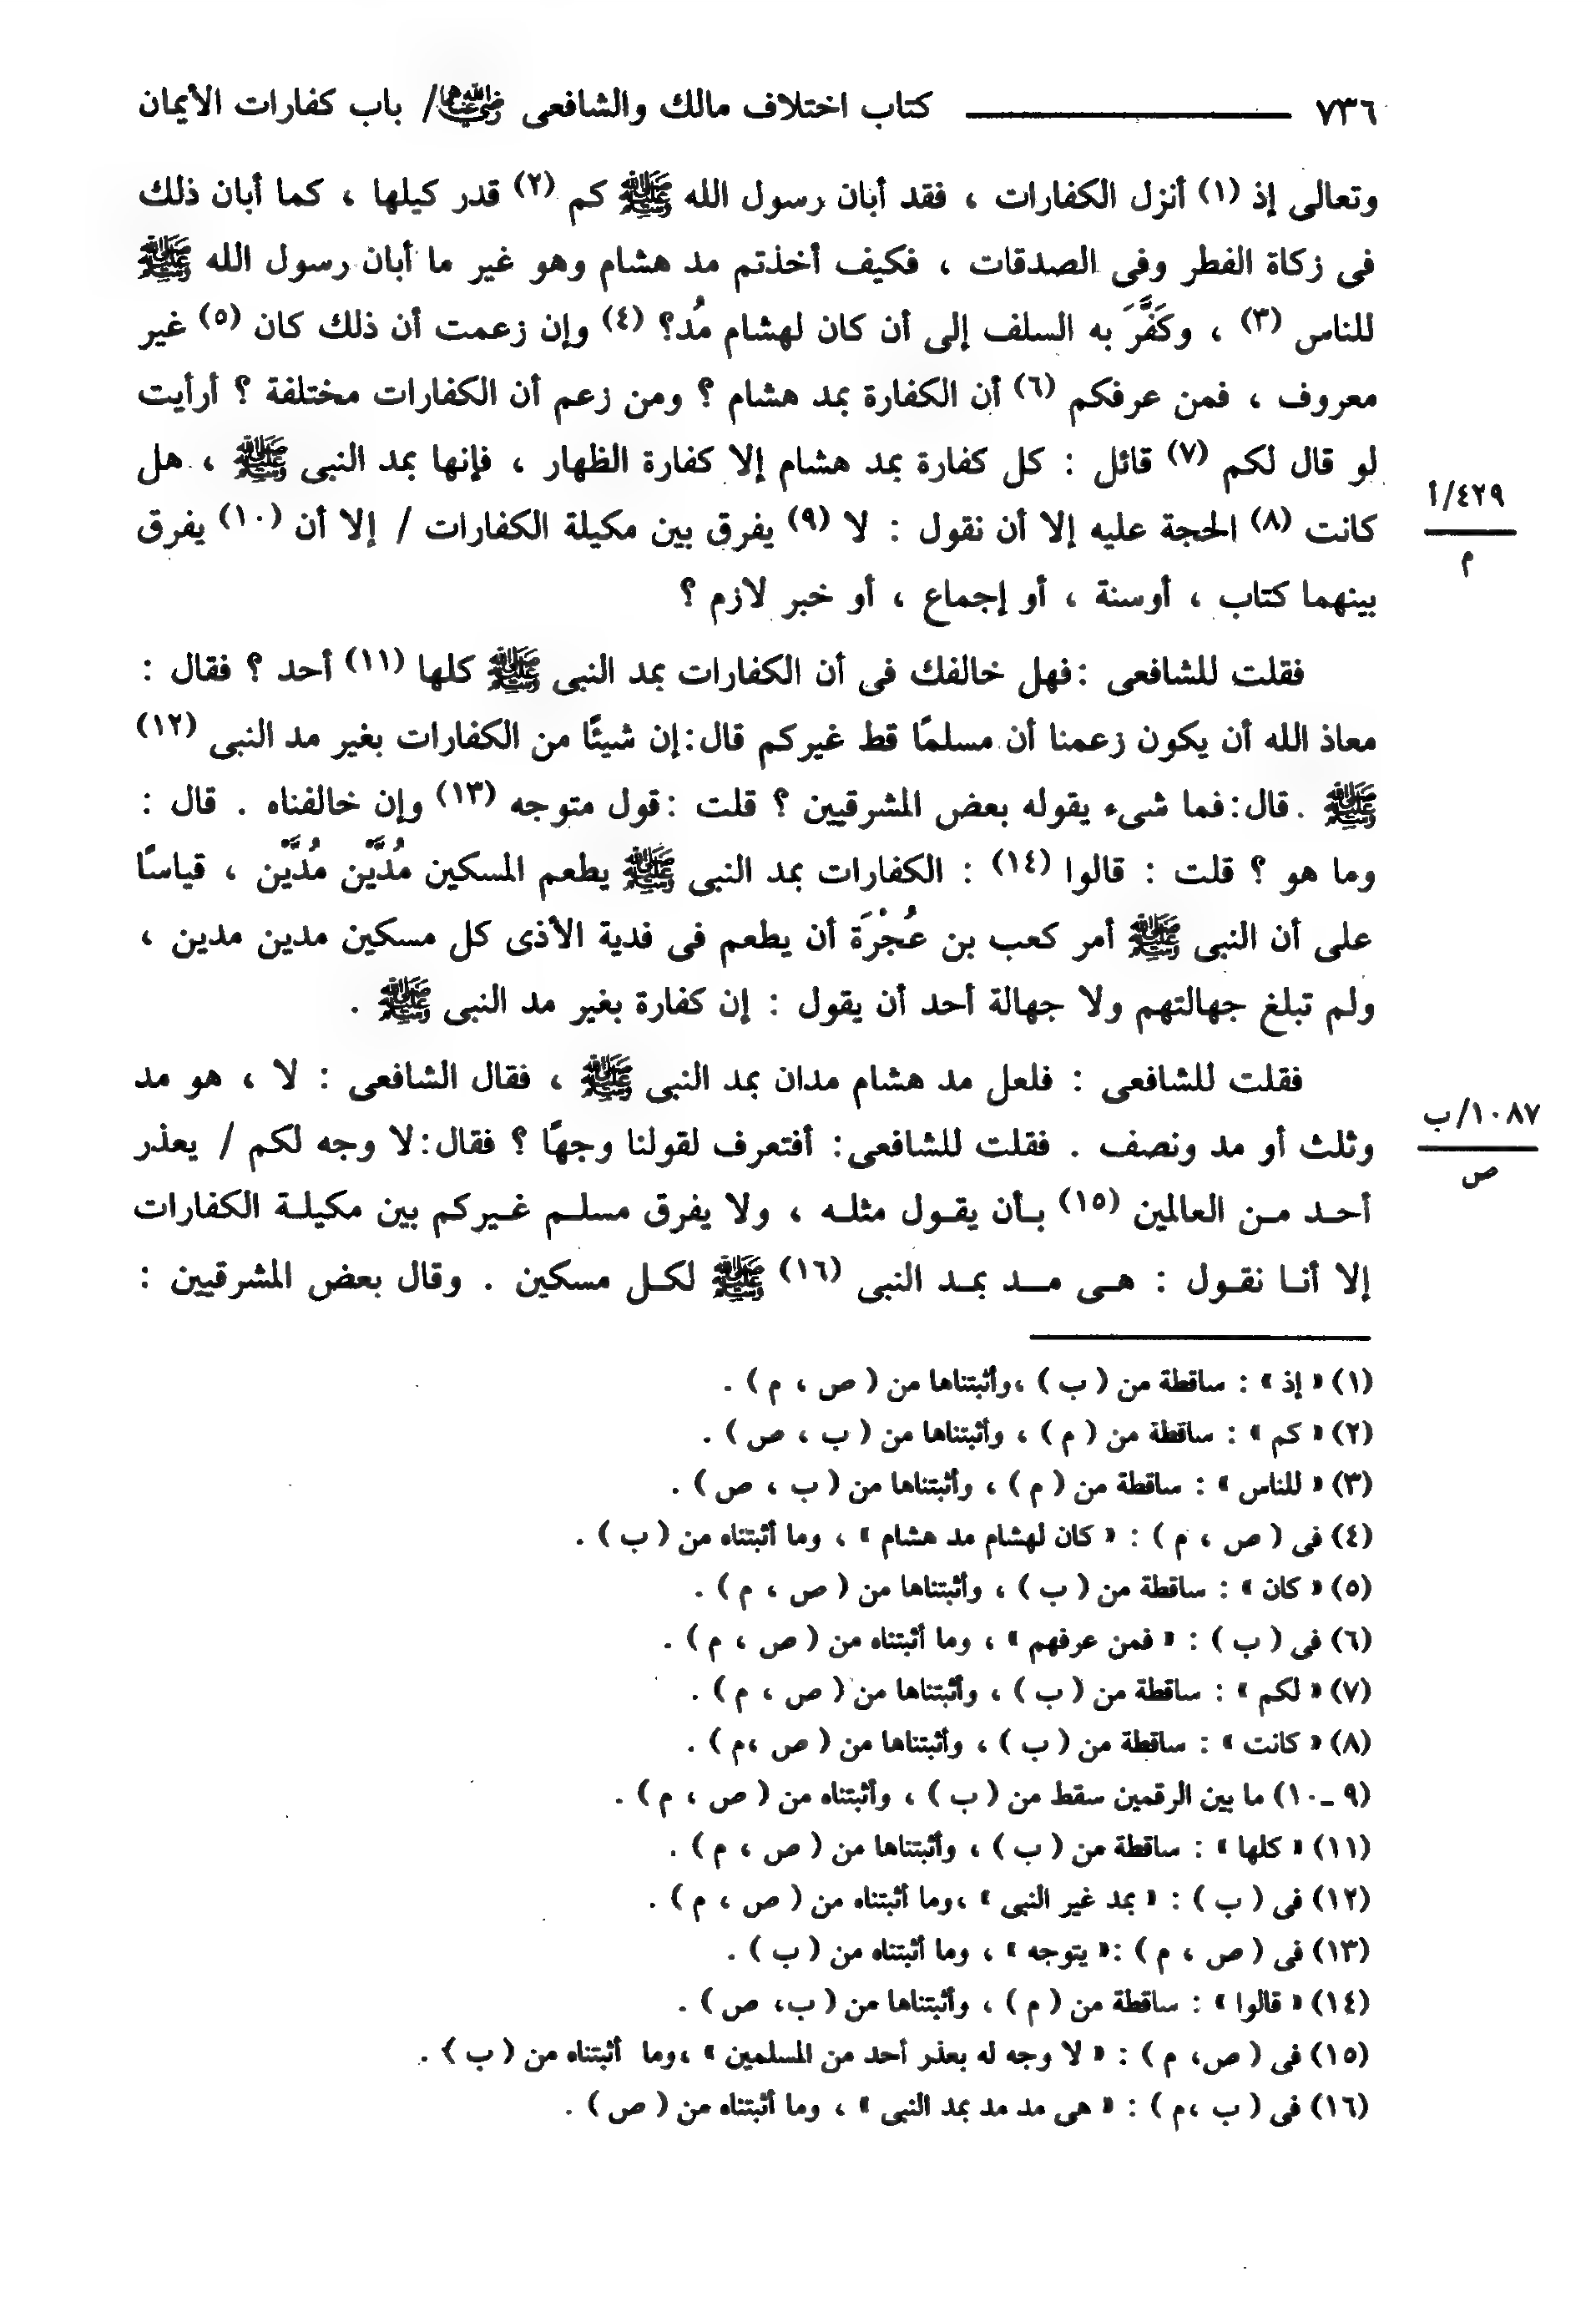 ٧٣٦ كتاب اختلاف مالك والشافعى رضي الله عنهما/ باب كفارات الأيمان
وتعالى إذ (١) أنزل الكفارات ، فقد أبان رسول الله ﷺ كم (٢) قدر كيلها ، كما أبان ذلك
فى زكاة الفطر وفى الصدقات ، فكيف أخذتم مد هشام وهو غير ما أبان رسول الله ﷺ
للناس (٣) ، وكَفَّرَ به السلف إلى أن كان لهشام مُد؟ (٤) وإن زعمت أن ذلك كان (٥) غير
معروف ، فمن عرفكم (٦) أن الكفارة بمد هشام ؟ ومن زعم أن الكفارات مختلفة ؟ أرأيت
لو قال لكم (٧) قائل : كل كفارة بمد هشام إلا كفارة الظهار ، فإنها بمد النبى ﷺ ، هل
كانت (٨) الحجة عليه إلا أن نقول : لا (٩) يفرق بين مكيلة الكفارات / إلا أن (١٠) يفرق
٤٢٩/أ
م
بينهما كتاب ، أوسنة ، أو إجماع ، أو خبر لازم ؟
فقلت للشافعى :فهل خالفك فى أن الكفارات بمد النبى ﷺ كلها (١١) أحد ؟ فقال :
معاذ الله أن يكون زعمنا أن مسلمًا قط غيركم قال:إن شيئًا من الكفارات بغير مد النبى (١٢)
ﷺ .قال:فما شىء يقوله بعض المشرقيين ؟ قلت :قول متوجه (١٣) وإن خالفناه . قال :
وما هو ؟ قلت : قالوا (١٤) : الكفارات بمد النبى ﷺ يطعم المسكين مُدَّيْن مُدَّيْن ، قياسًا
على أن النبى ﷺ أمر كعب بن عُجْرَة أن يطعم فى فدية الأذى كل مسكين مدين مدين ،
ولم تبلغ جهالتهم ولا جهالة أحد أن يقول : إن كفارة بغير مد النبى ﷺ .
فقلت للشافعى : فلعل مد هشام مدان بمد النبى ﷺ ، فقال الشافعى : لا ، هو مد
وثلث أو مد ونصف . فقلت للشافعى: أفتعرف لقولنا وجهًا ؟ فقال:لا وجه لكم / يعذر
١٠٨٧/ب
ص
أحـد مـن العالمين (١٥) بـأن يقـول مثلـه ، ولا يفرق مسلـم غـيركم بين مكيلـة الكفارات
إلا أنـا نقـول : هـى مـــد بمـد النبى (١٦) ﷺ لكـل مسكين . وقال بعض المشرقيين :
(١) « إذ » : ساقطة من ( ب ) ،وأثبتناها من ( ص ، م ) .
(٢) « كم » : ساقطة من ( م ) ، وأثبتناها من ( ب ، ص ) .
(٣) « للناس » : ساقطة من ( م ) ، وأثبتناها من ( ب ، ص ) .
(٤) فى ( ص ، م ) : « كان لهشام مد هشام » ، وما أثبتناه من ( ب ) .
(٥) « كان » : ساقطة من ( ب ) ، وأثبتناها من ( ص ، م ) .
(٦) فى ( ب ) : « فمن عرفهم » ، وما أثبتناه من ( ص ، م ) .
(٧) « لكم » : ساقطة من ( ب ) ، وأثبتناها من ( ص ، م ) .
(٨) « كانت » : ساقطة من ( ب ) ، وأثبتناها من ( ص ،م ) .
(٩ ـ١٠) ما بين الرقمين سقط من ( ب ) ، وأثبتناه من ( ص ، م ) .
(١١) « كلها » : ساقطة من ( ب ) ، وأثبتناها من ( ص ، م ) .
(١٢) فى ( ب ) : « بمد غير النبى » ،وما أثبتناه من ( ص ، م ) .
(١٣) فى ( ص ، م ) :« يتوجه » ، وما أثبتناه من ( ب ) .
(١٤) « قالوا » : ساقطة من ( م ) ، وأثبتناها من ( ب، ص ) .
(١٥) فى ( ص، م ) : « لا وجه له بعذر أحد من المسلمين » ،وما أثبتناه من ( ب ) .
(١٦) فى ( ب ،م ) : « هى مد مد بمد النبى » ، وما أثبتناه من ( ص ) .